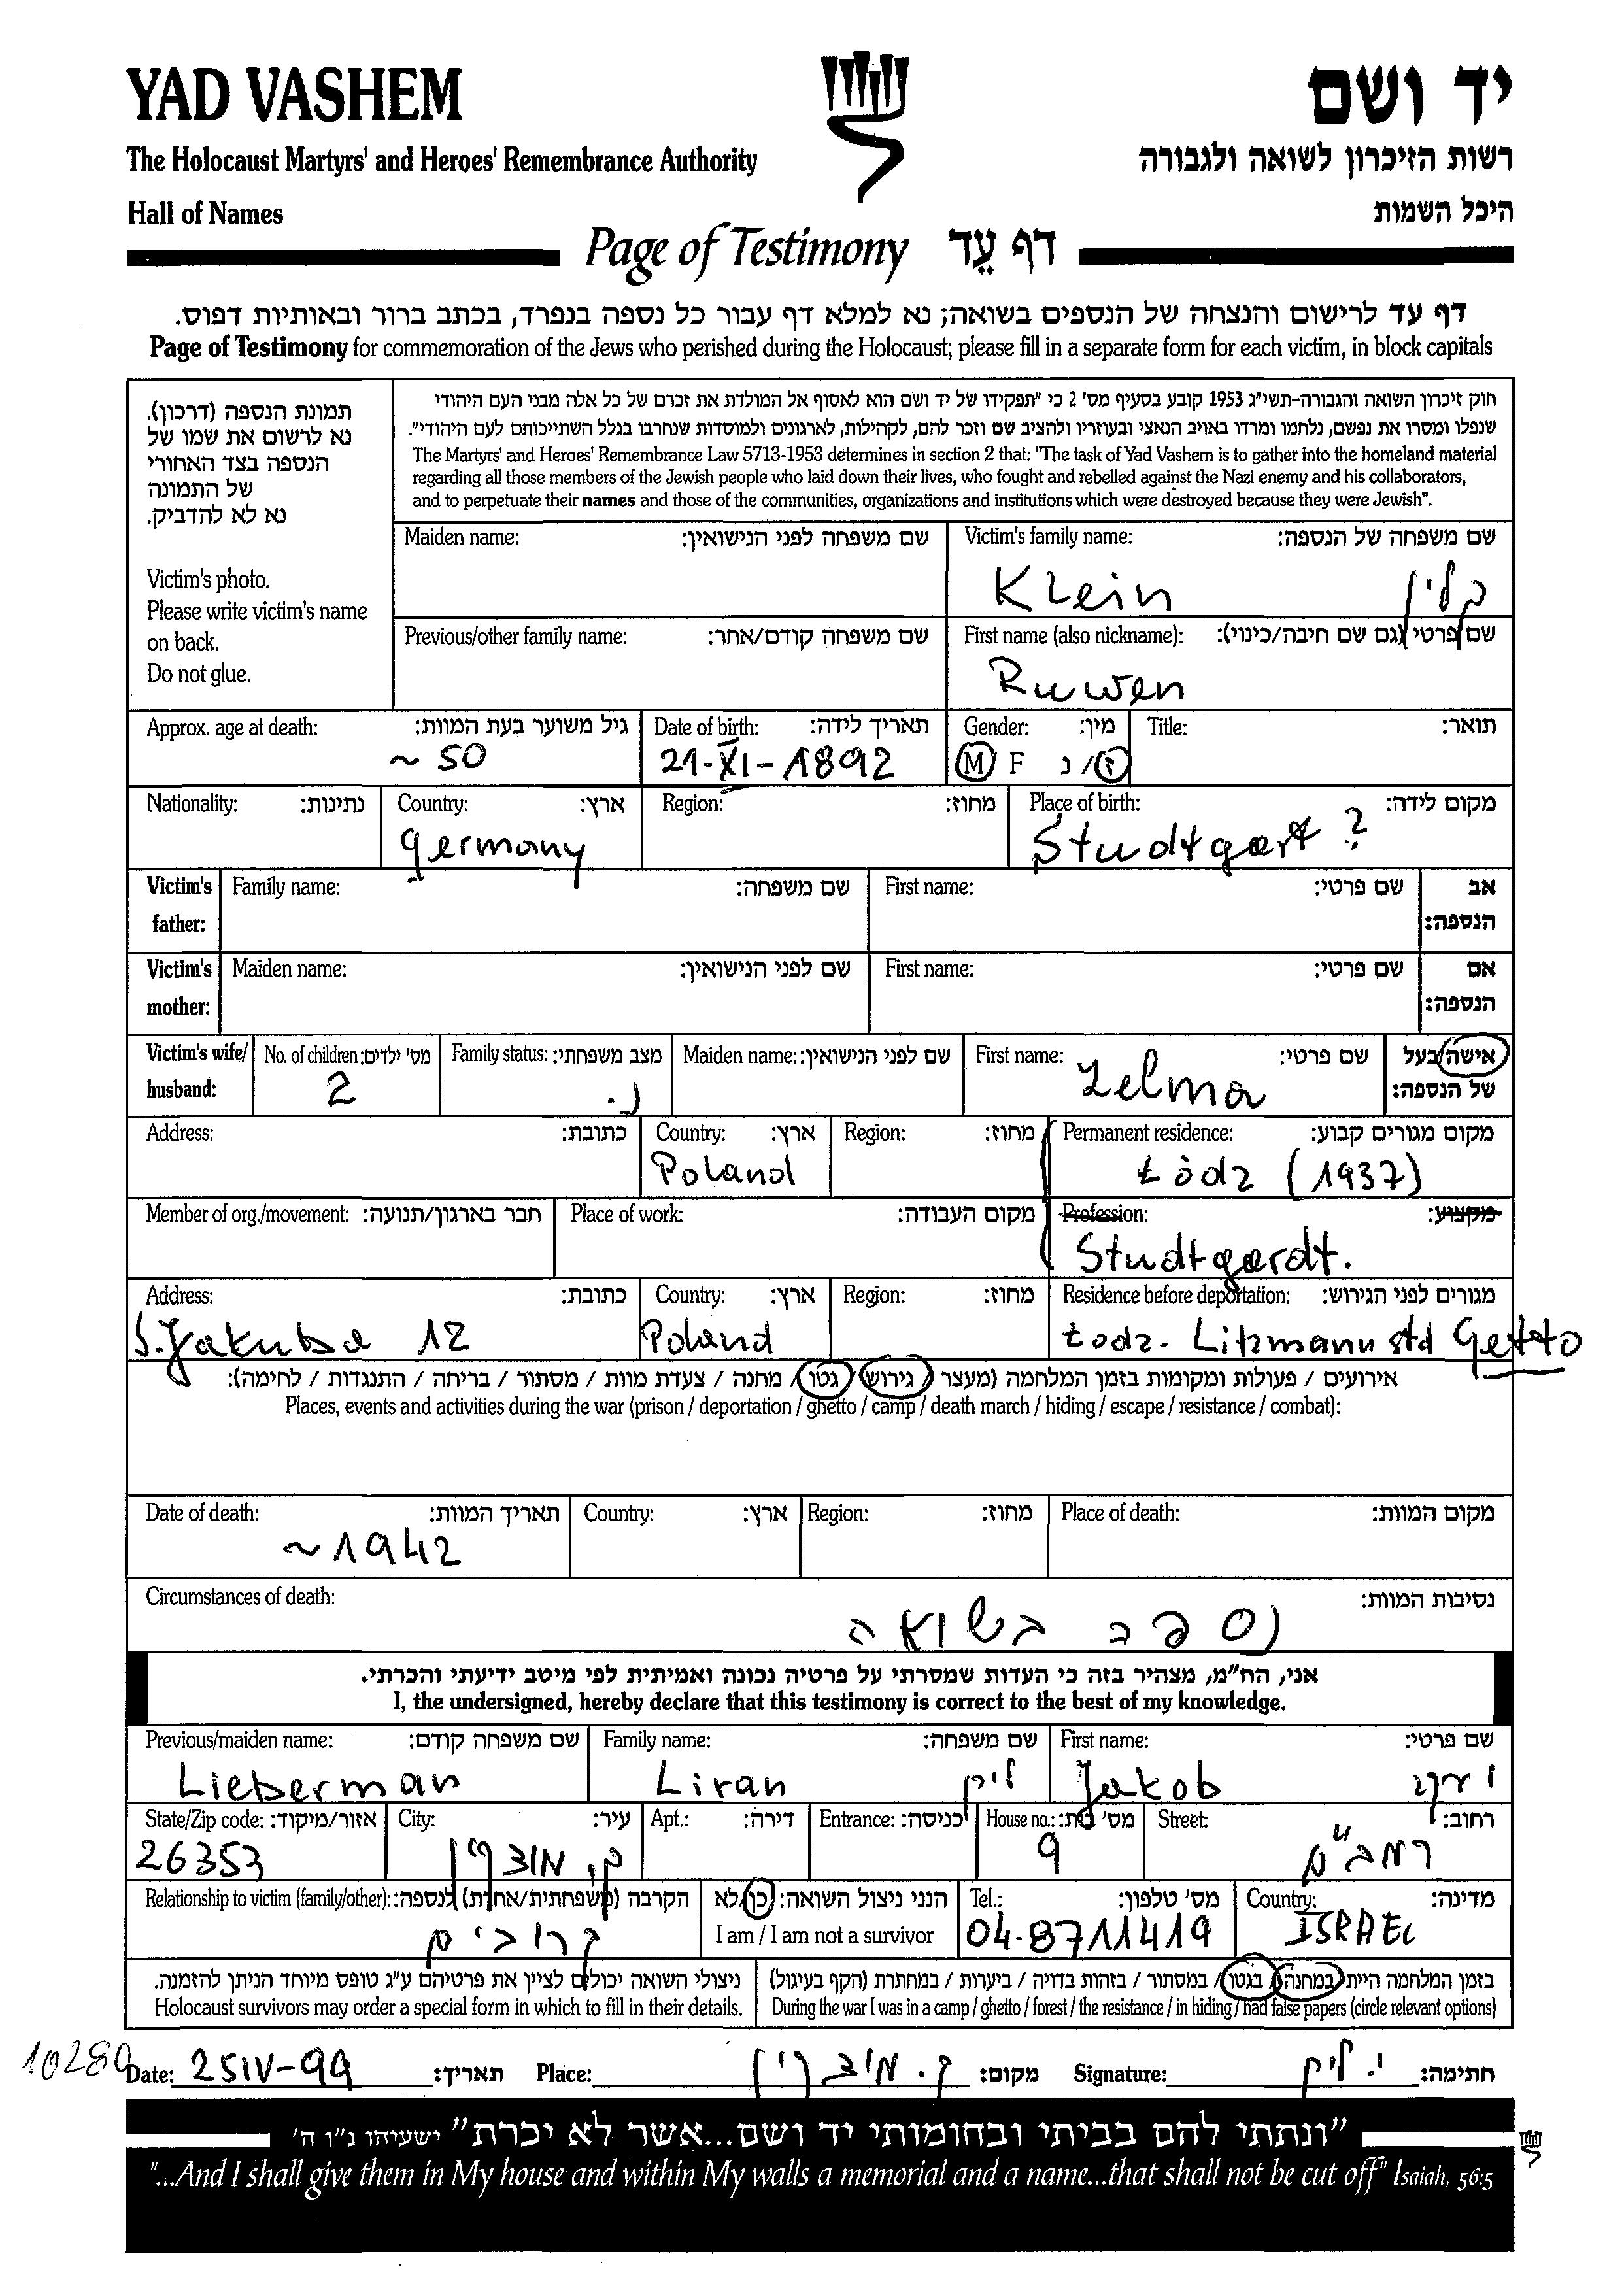 YAD VASHEM
יד ושם
The Holocaust Martyrs' and Heroes' Remembrance Authority
רשות הזיכרון לשואה ולגבורה
Hall of Names
היכל השמות
Page of Testimony דף עֵד
דף עד לרישום והנצחה של הנספים בשואה; נא למלא דף עבור כל נספה בנפרד, בכתב ברור ובאותיות דפוס.
Page of Testimony for commemoration of the Jews who perished during the Holocaust; please fill in a separate form for each victim, in block capitals
תמונת הנספה (דרכון).
נא לרשום את שמו של
הנספה בצד האחורי
של התמונה
נא לא להדביק.
Victim's photo.
Please write victim's name
on back.
Do not glue.
חוק זיכרון השואה והגבורה-תשי"ג 1953 קובע בסעיף מס' 2 כי "תפקידו של יד ושם הוא לאסוף אל המולדת את זכרם של כל אלה מבני העם היהודי
שנפלו ומסרו את נפשם, נלחמו ומרדו באויב הנאצי ובעוזריו ולהציב שם וזכר להם, לקהילות, לארגונים ולמוסדות שנחרבו בגלל השתייכותם לעם היהודי".
The Martyrs' and Heroes' Remembrance Law 5713-1953 determines in section 2 that: "The task of Yad Vashem is to gather into the homeland material
regarding all those members of the Jewish people who laid down their lives, who fought and rebelled against the Nazi enemy and his collaborators,
and to perpetuate their names and those of the communities, organizations and institutions which were destroyed because they were Jewish".
Maiden name: שם משפחה לפני הנישואין:
Victim's family name: שם משפחה של הנספה:
Klein קליין
Previous/other family name: שם משפחה קודם/אחר:
First name (also nickname): שם פרטי (גם שם חיבה/כינוי):
Ruwen
Approx. age at death: גיל משוער בעת המוות:
~ 50
Date of birth: תאריך לידה:
21-XI-1892
Gender: מין:
M F ז/נ
Title: תואר:
Nationality: נתינות:
Country: ארץ:
Germany
Region: מחוז:
Place of birth: מקום לידה:
Studtgart ?
Victim's father: Family name: שם משפחה: First name: שם פרטי: אב הנספה:
Victim's mother: Maiden name: שם לפני הנישואין: First name: שם פרטי: אם הנספה:
Victim's wife/ husband:
No. of children: מס' ילדים:
2
Family status: מצב משפחתי:
נ.
Maiden name: שם לפני הנישואין:
First name: שם פרטי:
Zelma
אישה/בעל של הנספה:
Address: כתובת:
Country: ארץ:
Poland
Region: מחוז:
Permanent residence: מקום מגורים קבוע:
Łòdz (1937)
Member of org./movement: חבר בארגון/תנועה:
Place of work: מקום העבודה:
Profession: מקצוע:
Studtgardt.
Address: כתובת:
S. Jakuba 12
Country: ארץ:
Poland
Region: מחוז:
Residence before deportation: מגורים לפני הגירוש:
Łodz. Litzmann std Getto
אירועים / פעולות ומקומות בזמן המלחמה (מעצר / גירוש / גטו / מחנה / צעדת מוות / מסתור / בריחה / התנגדות / לחימה):
Places, events and activities during the war (prison / deportation / ghetto / camp / death march / hiding / escape / resistance / combat):
Date of death: תאריך המוות:
~1942
Country: ארץ:
Region: מחוז:
Place of death: מקום המוות:
Circumstances of death: נסיבות המוות:
נספה בשואה
אני, הח"מ, מצהיר בזה כי העדות שמסרתי על פרטיה נכונה ואמיתית לפי מיטב ידיעתי והכרתי.
I, the undersigned, hereby declare that this testimony is correct to the best of my knowledge.
Previous/maiden name: שם משפחה קודם:
Lieberman
Family name: שם משפחה:
Liran לירן
First name: שם פרטי:
Jakob יעקב
State/Zip code: אזור/מיקוד:
26353
City: עיר:
ק. מוצקין
Apt.: דירה:
Entrance: כניסה:
House no.: מס' בית:
9
Street: רחוב:
רמב"ם
Relationship to victim (family/other): הקרבה (משפחתית/אחרת) לנספה:
קרובים
הנני ניצול השואה: כן/לא
I am / I am not a survivor
Tel.: מס' טלפון:
04-8711419
Country: מדינה:
ISRAEL
ניצולי השואה יכולים לציין את פרטיהם ע"ג טופס מיוחד הניתן להזמנה.
Holocaust survivors may order a special form in which to fill in their details.
בזמן המלחמה הייתי במחנה / בגטו / במסתור / בזהות בדויה / ביערות / במחתרת (הקף בעיגול)
During the war I was in a camp / ghetto / forest / the resistance / in hiding / had false papers (circle relevant options)
10280
Date: 25IV-99 תאריך: Place: ק. מוצקין מקום: Signature: י. לירן חתימה:
"ונתתי להם בביתי ובחומותי יד ושם...אשר לא יכרת" ישעיהו נ"ו ה'
"...And I shall give them in My house and within My walls a memorial and a name...that shall not be cut off" Isaiah, 56:5